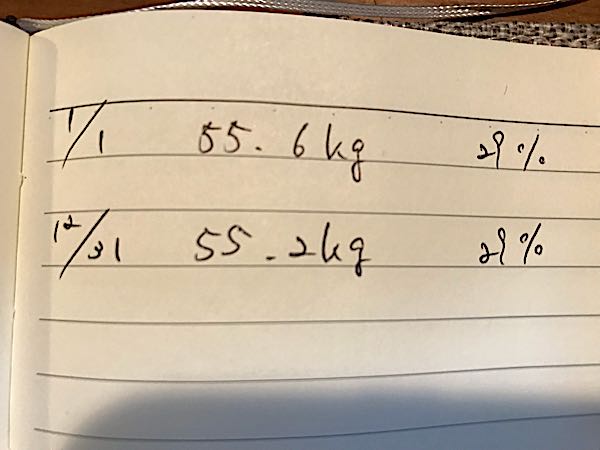 1/1 55.6kg 29%
12/31 55.2kg 29%